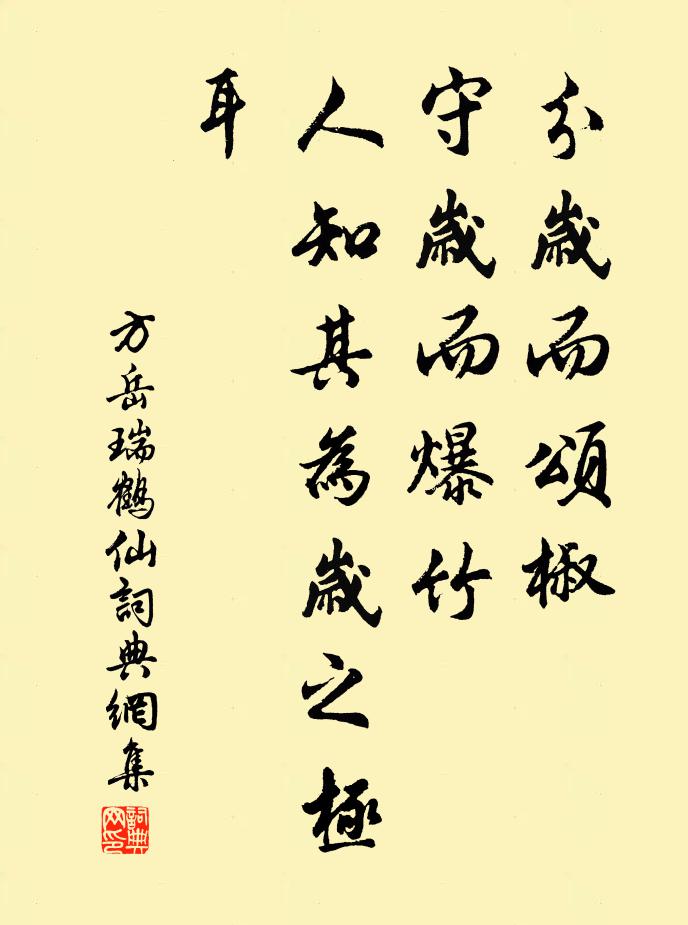 分歲而頌椒
守歲而爆竹
人知其為歲之極
耳
方岳瑞鶴仙詞典網集
詞典
网印